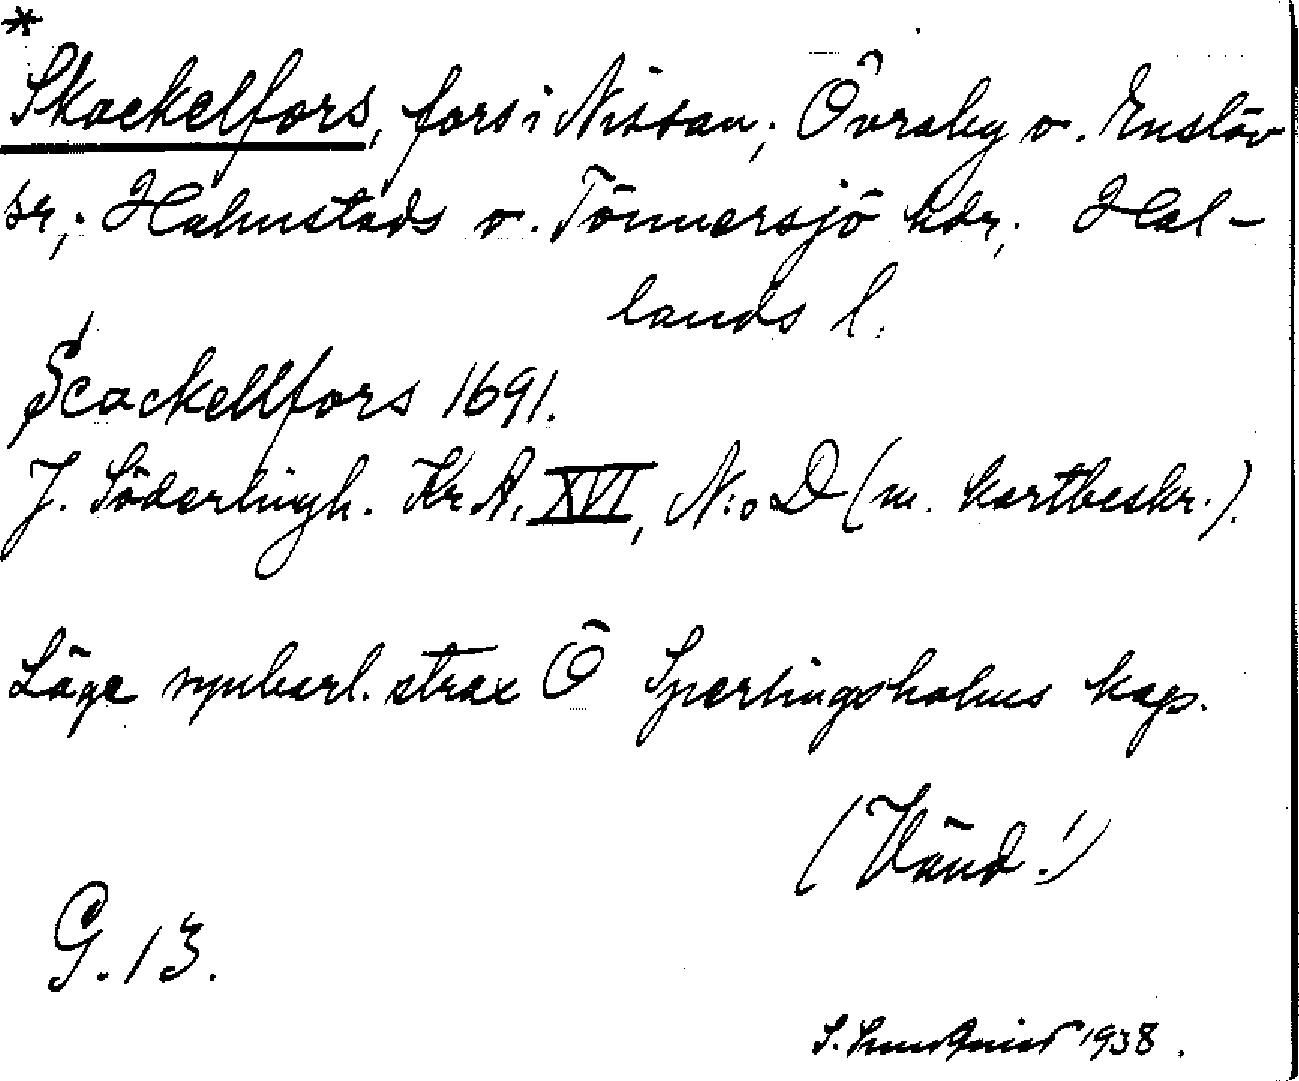 *
Skackelfors, fors i Nissan; Övraby o. Enslöv
sr; Halmstads o. Tönnersjö hdr; Hal-
lands l.
Scackellfors 1691.
J. Söderlingh. Kr A. XVI, N:o D (m. kartbeskr.).
Läge synbarl. strax Ö Sperlingsholms kap.
(Vänd!)
G. 13.
S. 1938.